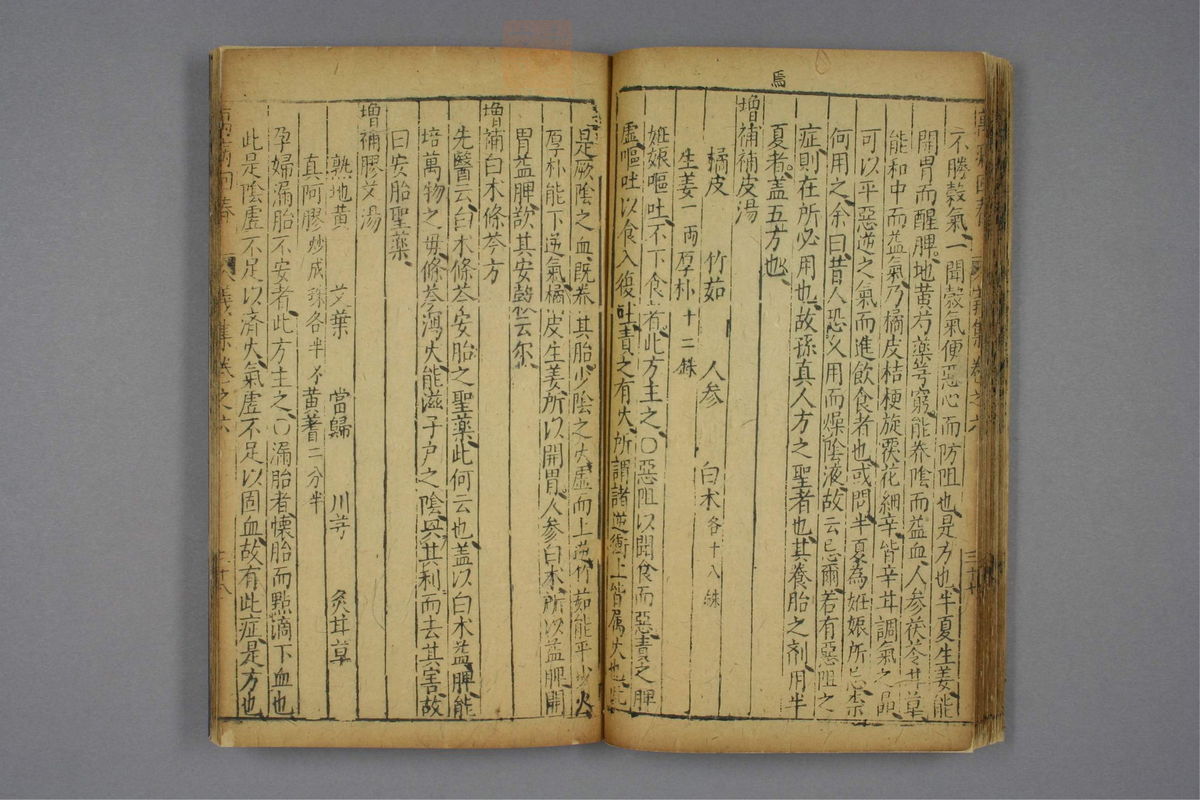 焉
不勝穀氣一聞穀氣便惡心而防阻也是方也半夏生姜能
開胃而醒脾地黄芍藥芎窮能养陰而益血人參茯苓甘草
能和中而益氣乃橘皮桔梗旋覆花細辛皆辛甘調氣之品
可以平惡逆之氣而進飲食者也或問半夏為姙娠所忌柰
何用之余曰昔人恐久用而燥陰液故云忌爾若有惡阻之
症則在所必用也故孫真人方之聖者也其養胎之剤用半
夏者蓋五方也
增補補皮湯
橘皮 竹茹 人参 白术各十八銖
生姜一兩厚朴十二銖
姙娠嘔吐不下食者此方主之○惡阻以聞食而惡責之脾
虛嘔吐以食入復吐責之有火所謂諸逆衝上皆属火也
是厥陰之血既养其胎少陰之火虛而上逆竹茹能平少火
厚朴能下逆氣橘皮生姜所以開胃人参白术所以益脾開
胃益脾欲其安穀云尔
增補白术條芩方
先醫云白术條芩安胎之聖藥此何云也蓋以白术益脾能
培萬物之毋條芩瀉火能滋子户之陰與其利而去其害故
曰安胎聖藥
增補膠艾湯
熟地黄 艾葉 當歸 川芎 炙甘草
真阿膠炒成珠各半不黄蓍二分半
孕婦漏胎不安者此方主之○漏胎者懷胎而點滴下血也
此是陰虛不足以済火氣虛不足以固血故有此症是方也
萬病回春 義集卷之六